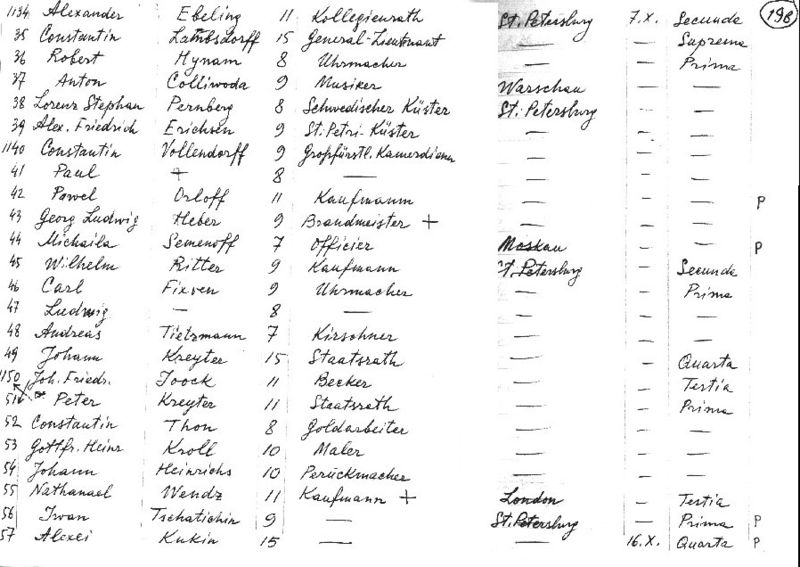 1134 Alexander Ebeling 11 Kollegienrath St. Petersburg 7.X. Secunda 198
35 Constantin Lambsdorff 15 General-Lieutnant — — Suprema
36 Robert Hynam 8 Uhrmacher — — Prima
37 Anton Colliwoda 9 Musiker Warschau — —
38 Lorenz Stephan Pernberg 8 Schwedischer Küster St. Petersburg — —
39 Alex. Friedrich Erichsen 9 St. Petri-Küster — — —
1140 Constantin Vollendorff 9 Großfürstl. Kamerdiener — — —
41 Paul + 8 — — — —
42 Pawel Orloff 11 Kaufmann — — — P
43 Georg Ludwig Heber 9 Brandmeister + — — —
44 Michaila Semenoff 7 Officier Moskau — — P
45 Wilhelm Ritter 9 Kaufmann St. Petersburg — Secunda
46 Carl Fixsen 9 Uhrmacher — — Prima
47 Ludwig — 8 — — — —
48 Andreas Tietzmann 7 Kirschner — — —
49 Johann Kreyter 15 Staatsrath — — Quarta
1150 Joh. Friedr. Joock 11 Becker — — Tertia
51 Peter Kreyter 11 Staatsrath — — Prima
52 Constantin Thon 8 Goldarbeiter — — —
53 Gottfr. Heinr Kroll 10 Maler — — —
54 Johann Heinrichs 10 Perückmacher — — —
55 Nathanael Wendz 11 Kaufmann + London — Tertia
56 Iwan Tschatichin 9 — St. Petersburg — Prima P
57 Alexei Kukin 15 — — 16.X. Quarta P